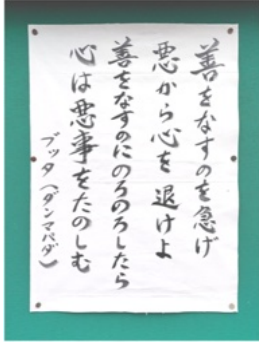 善をなすのを急げ
悪から心を退けよ
善をなすのにのろのろしたら
心は悪事をたのしむ
ブッタ(ダンマパダ)